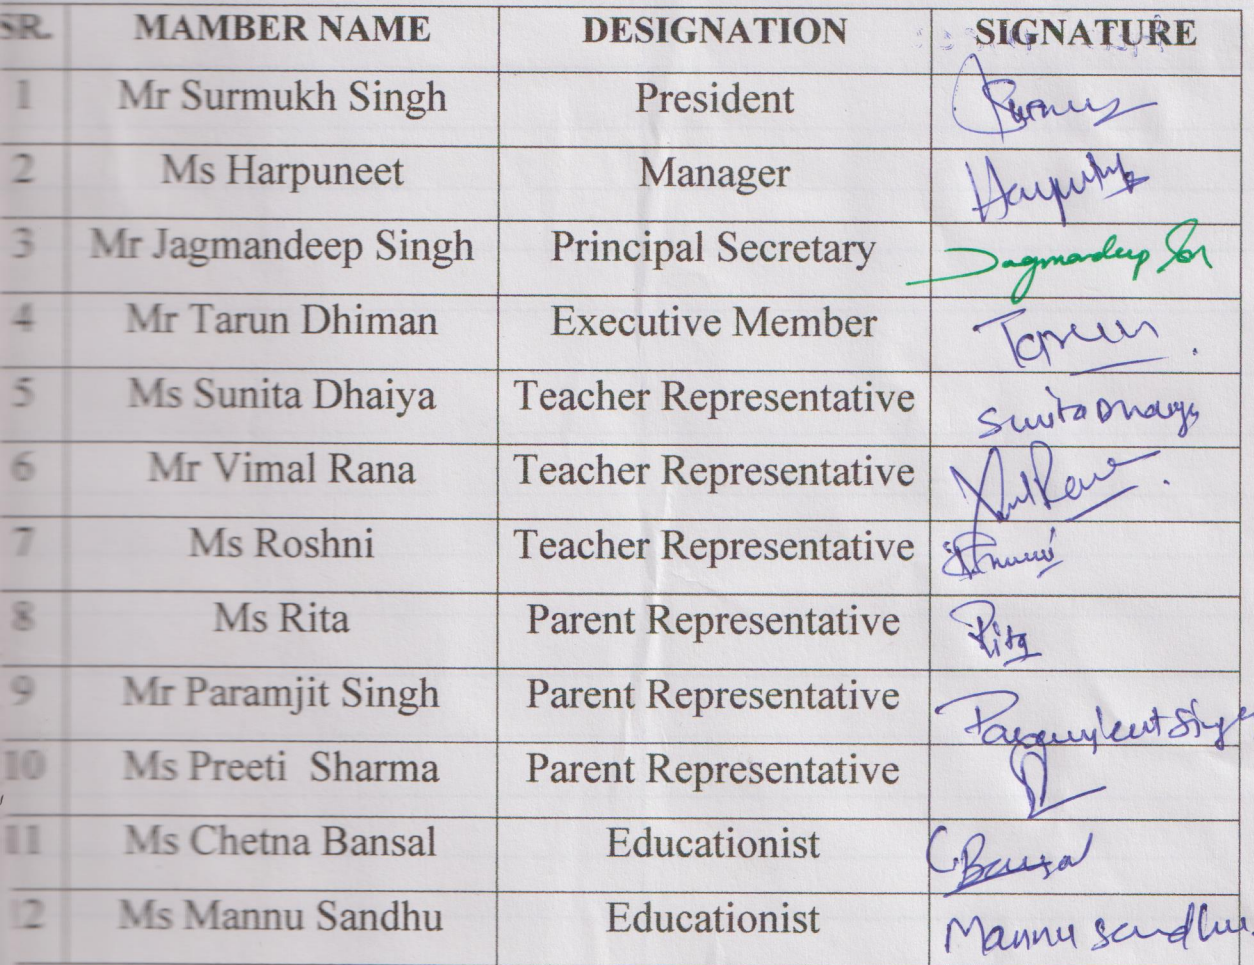 SR. MAMBER NAME DESIGNATION SIGNATURE
1 Mr Surmukh Singh President
2 Ms Harpuneet Manager
3 Mr Jagmandeep Singh Principal Secretary Jagmandeep
4 Mr Tarun Dhiman Executive Member Tarun
5 Ms Sunita Dhaiya Teacher Representative Sunita
6 Mr Vimal Rana Teacher Representative
7 Ms Roshni Teacher Representative
8 Ms Rita Parent Representative Rita
9 Mr Paramjit Singh Parent Representative
10 Ms Preeti Sharma Parent Representative
11 Ms Chetna Bansal Educationist C Bansal
12 Ms Mannu Sandhu Educationist Mannu Sandhu